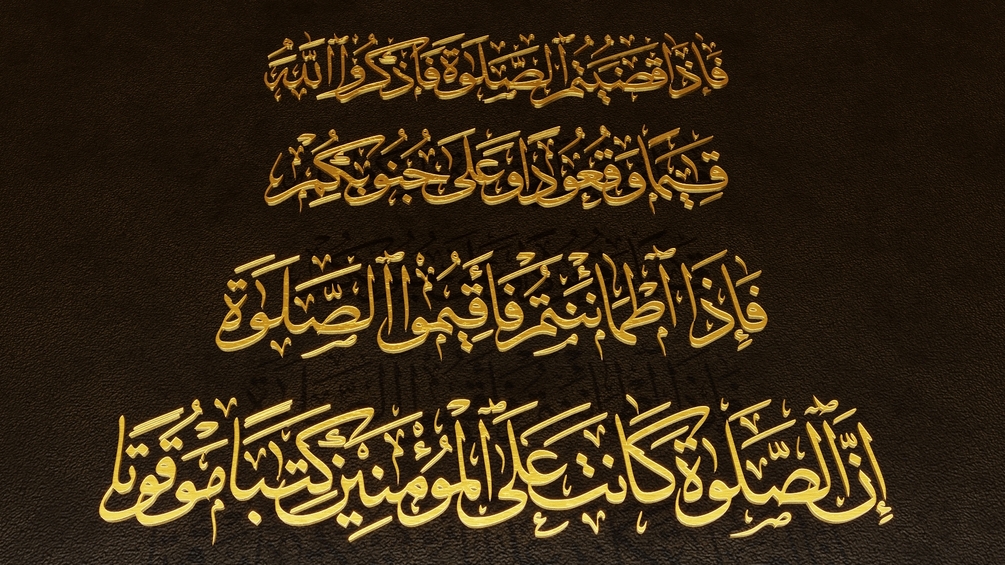 فَإِذَا قَضَيْتُمُ ٱلصَّلَوٰةَ فَٱذْكُرُوا۟ ٱللَّهَ
قِيَٰمًا وَقُعُودًا وَعَلَىٰ جُنُوبِكُمْ
فَإِذَا ٱطْمَأْنَنتُمْ فَأَقِيمُوا۟ ٱلصَّلَوٰةَ
إِنَّ ٱلصَّلَوٰةَ كَانَتْ عَلَى ٱلْمُؤْمِنِينَ كِتَٰبًا مَّوْقُوتًا